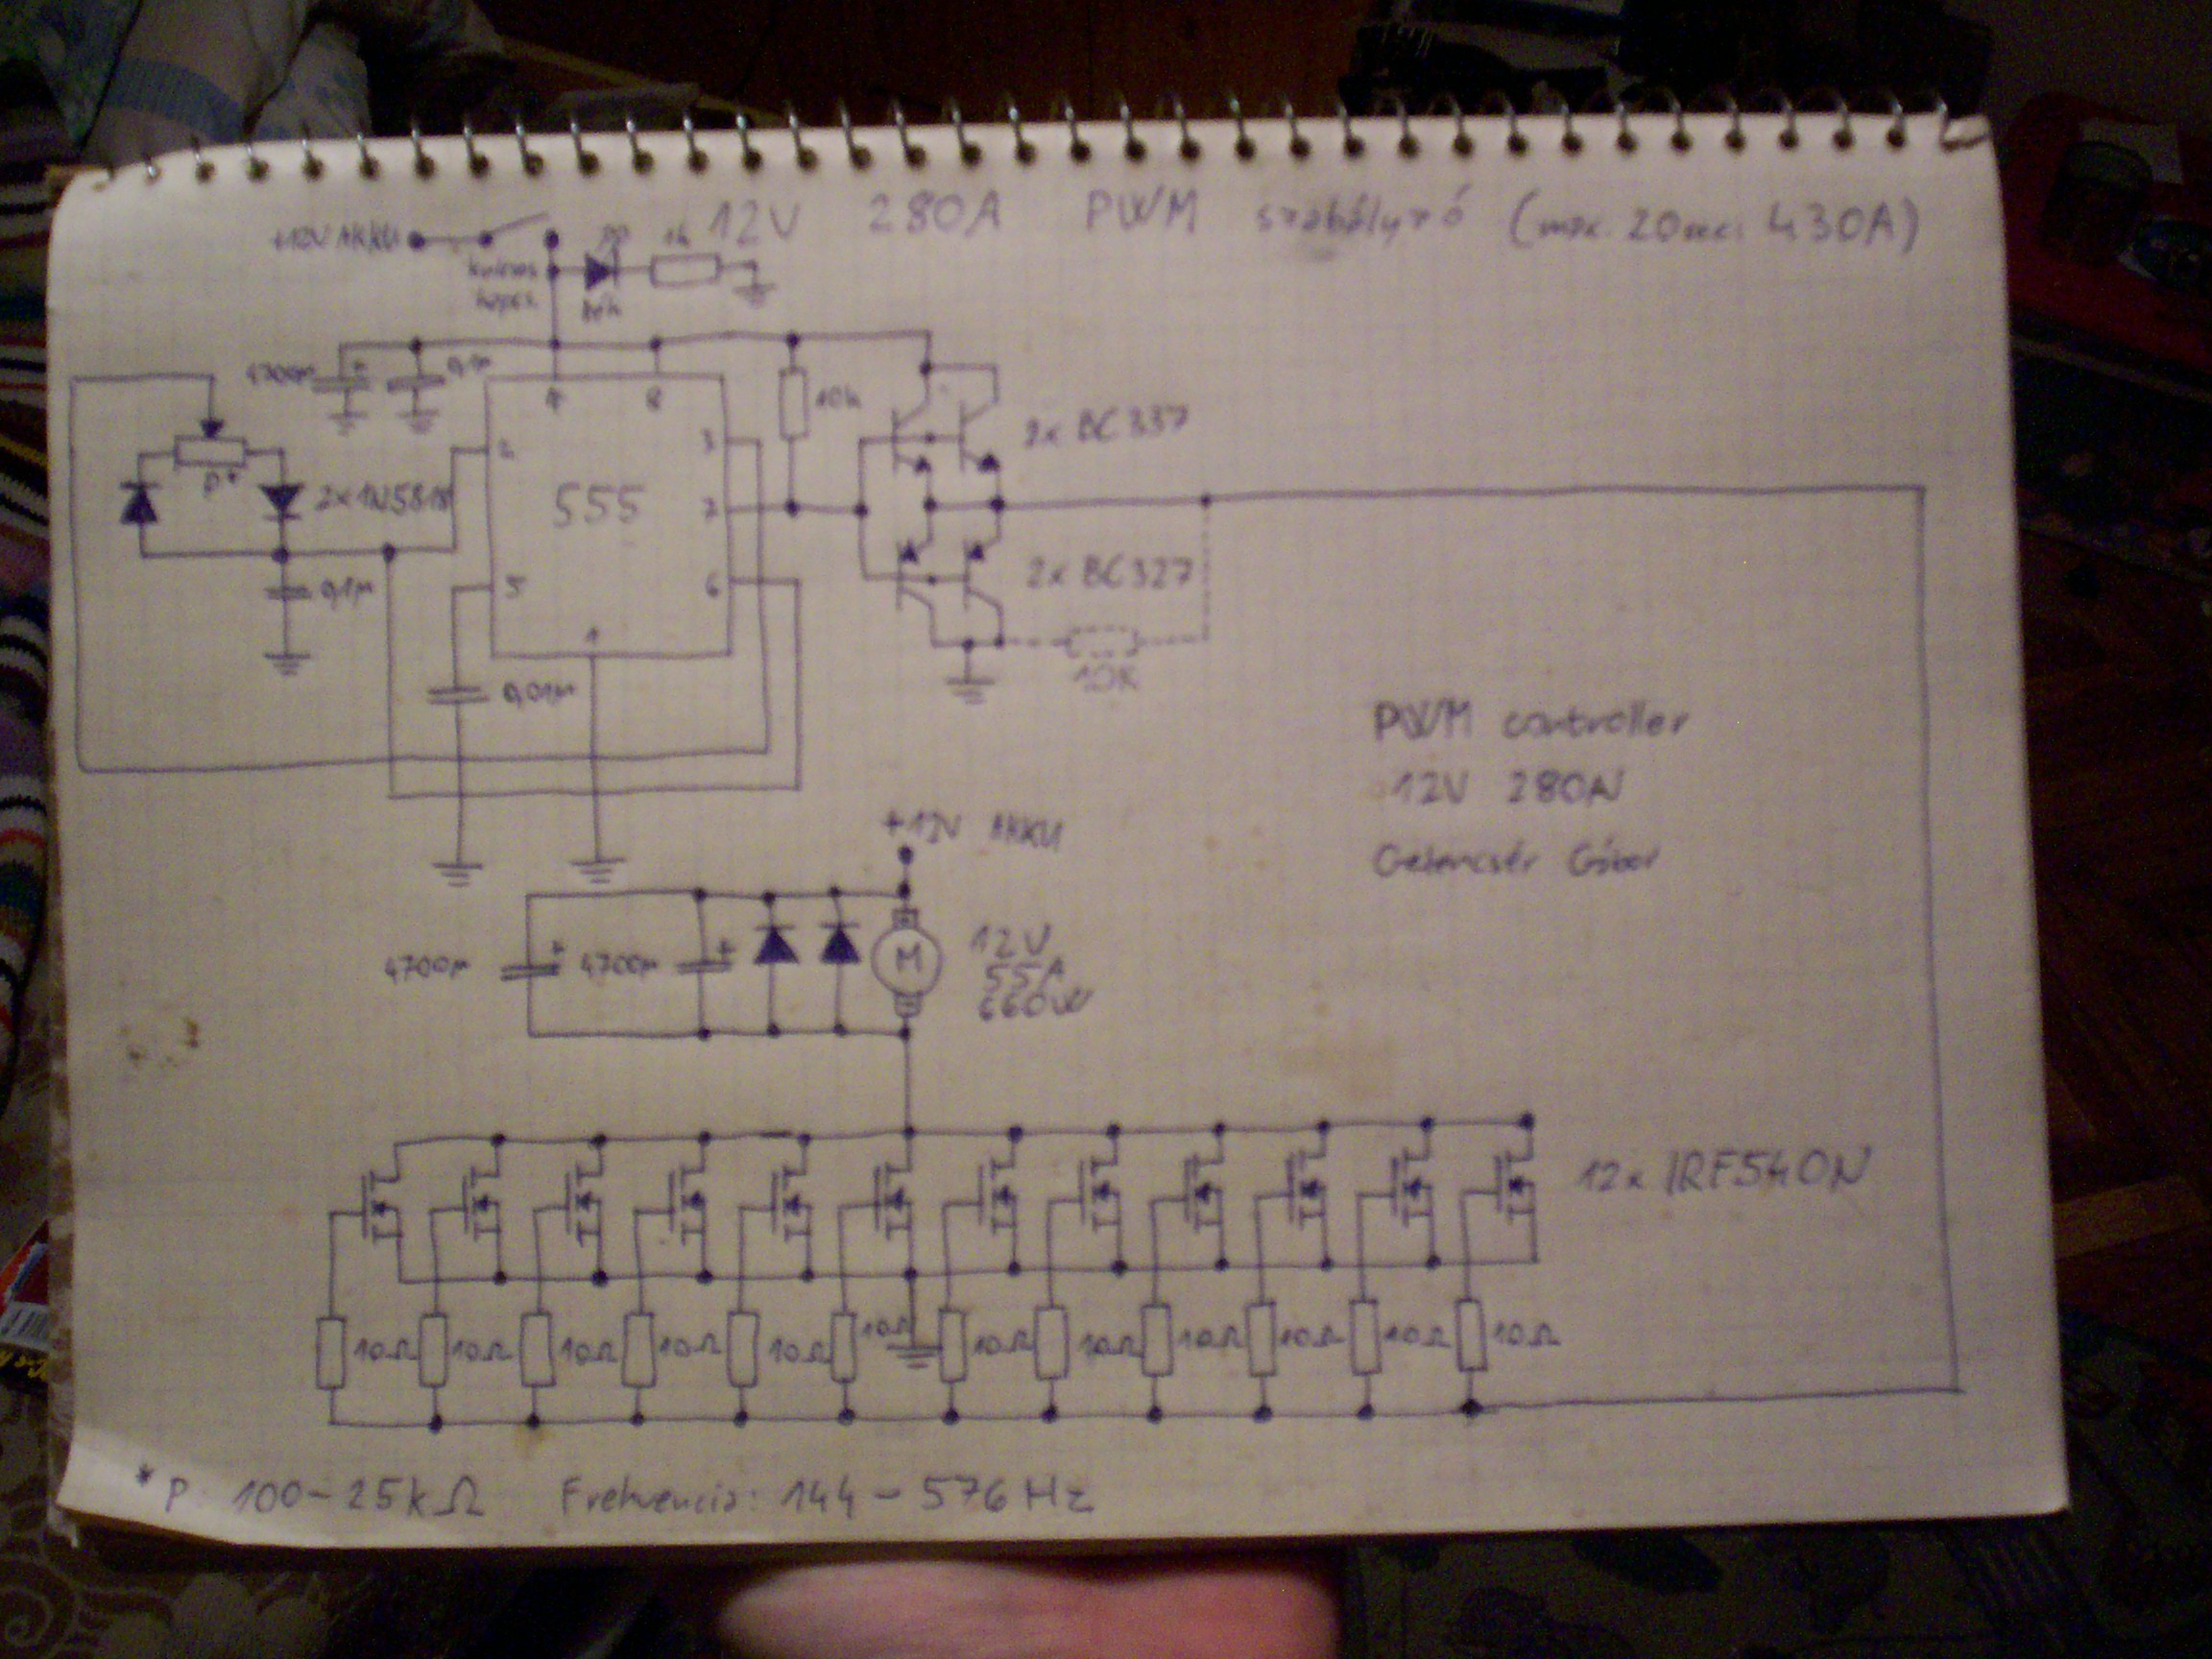 12V 280A PWM szabályzó (max. 20sec. 430A)
+12V AKKU
1k
kulcsos
kapcs.
kék
4700µ
0,1µ
10k
2x BC337
P*
2x1N5818
555
4
8
2
3
7
5
6
1
0,1µ
2x BC327
10K
0,01µ
PWM controller
12V 280A
Gelencsér Gábor
+12V AKKU
4700µ
4700µ
M
12V
55A
660W
12x IRF540N
10Ω 10Ω 10Ω 10Ω 10Ω 10Ω 10Ω 10Ω 10Ω 10Ω 10Ω 10Ω
* P 100-25kΩ Frekvencia: 144 - 576 Hz